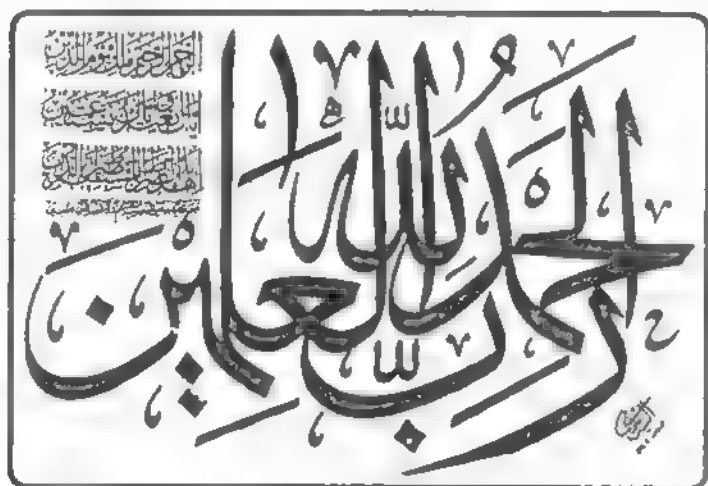 الحمد لله رب العالمين
الرحمن الرحيم مالك يوم الدين
إياك نعبد وإياك نستعين
اهدنا الصراط المستقيم صراط الذين